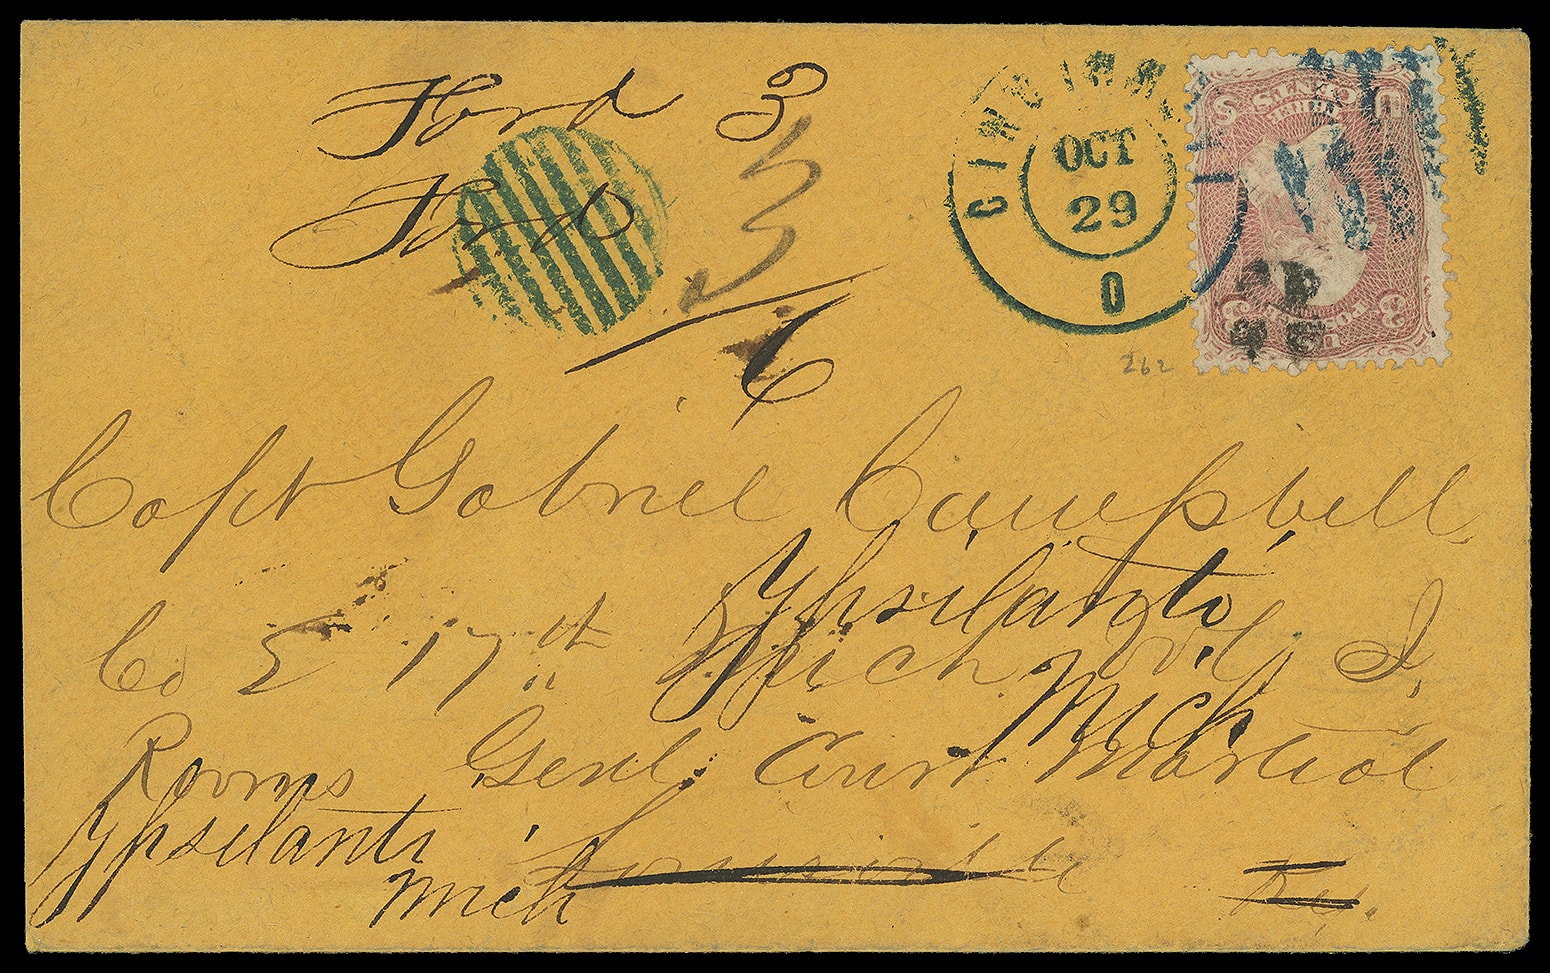 Ford 3
Ford 3
6
CINCINNATI
OCT
29
O
U S
THREE CENTS
U.S. POSTAGE
3 3
262
Capt Gabriel Campbell
Ypsilanti
Co E 17th Mich Vol, I,
Mich
Rooms Genl. Court Martial
Ypsilanti
Mich
Louisville Ky.